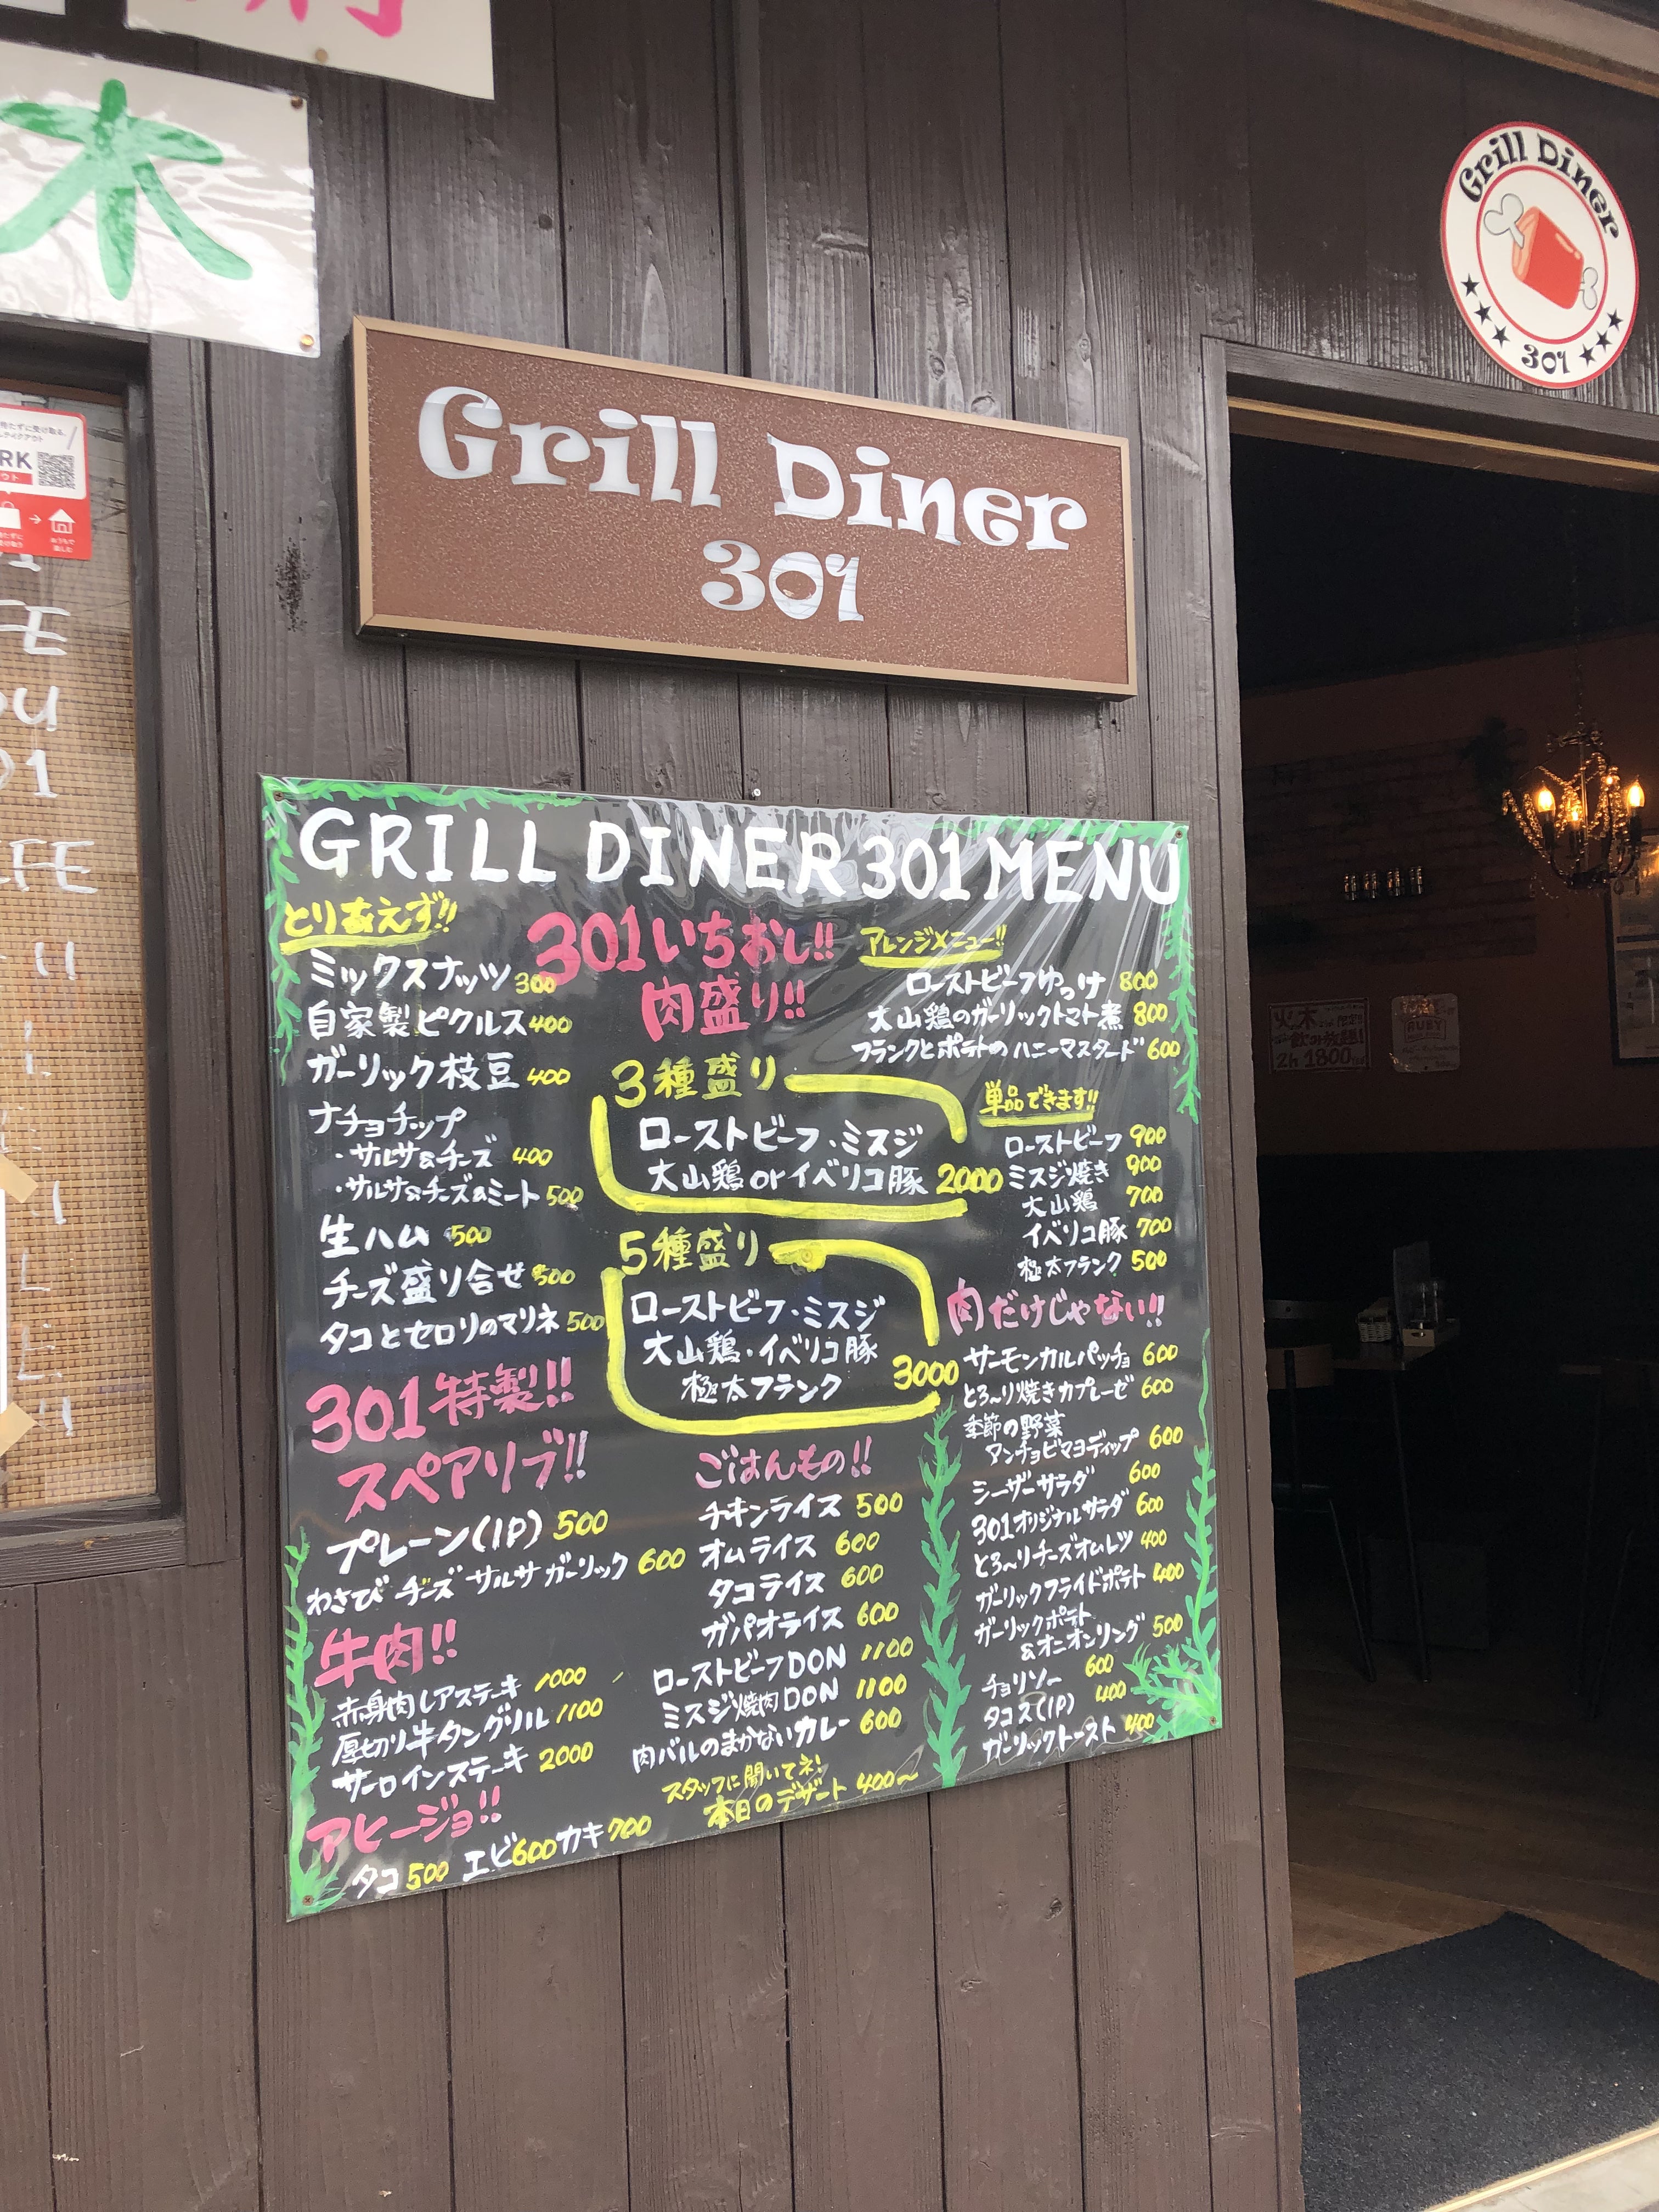 木
Grill Diner
301
Grill Diner
301
GRILL DINER 301 MENU
とりあえず!!
ミックスナッツ 300
自家製ピクルス 400
ガーリック枝豆 400
ナチョチップ
・サルサ&チーズ 400
・サルサ&チーズ&ミート 500
生ハム 500
チーズ盛り合せ 500
タコとセロリのマリネ 500
301特製!!
スペアリブ!!
プレーン(1P) 500
わさび チーズ サルサ ガーリック 600
牛肉!!
赤身肉レアステーキ 1000
厚切り牛タングリル 1100
サーロインステーキ 2000
アヒージョ!!
タコ 500 エビ 600 カキ 700
301いちおし!!
肉盛り!!
3種盛り
ローストビーフ・ミスジ
大山鶏orイベリコ豚 2000
5種盛り
ローストビーフ・ミスジ
大山鶏・イベリコ豚
極太フランク 3000
ごはんもの!!
チキンライス 500
オムライス 600
タコライス 600
ガパオライス 600
ローストビーフDON 1100
ミスジ焼肉DON 1100
肉バルのまかないカレー 600
スタッフに聞いてネ!
本日のデザート 400〜
アレンジメニュー!!
ローストビーフゆっけ 800
大山鶏のガーリックトマト煮 800
フランクとポテトのハニーマスタード 600
単品できます!!
ローストビーフ 900
ミスジ焼き 900
大山鶏 700
イベリコ豚 700
極太フランク 500
肉だけじゃない!!
サーモンカルパッチョ 600
とろ〜り焼きカプレーゼ 600
季節の野菜
アンチョビマヨディップ 600
シーザーサラダ 600
301オリジナルサラダ 600
とろ〜りチーズオムレツ 400
ガーリックフライドポテト 400
ガーリックポテト
&オニオンリング 500
チョリソー 600
タコス(1P) 400
ガーリックトースト 400
火木
飲み放題!
2h 1800
RUBY